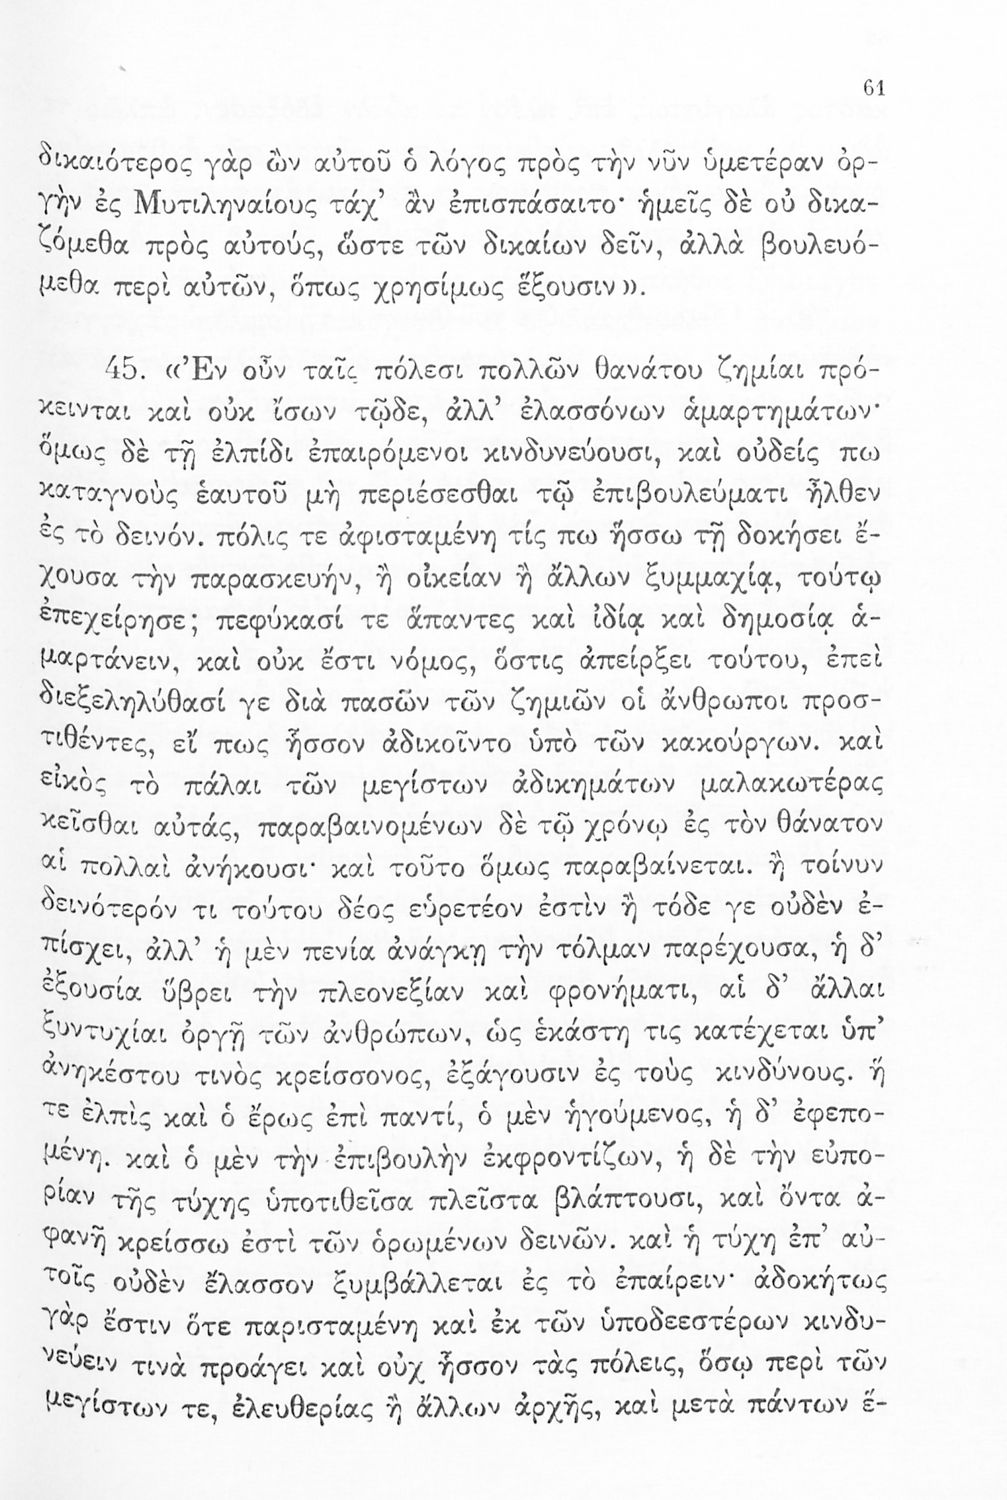 61
δικαιότερος γὰρ ὢν αὐτοῦ ὁ λόγος πρὸς τὴν νῦν ὑμετέραν ὀρ-
γὴν ἐς Μυτιληναίους τάχ’ ἂν ἐπισπάσαιτο· ἡμεῖς δὲ οὐ δικα-
ζόμεθα πρὸς αὐτούς, ὥστε τῶν δικαίων δεῖν, ἀλλὰ βουλευό-
μεθα περὶ αὐτῶν, ὅπως χρησίμως ἕξουσιν».
45. «Ἐν οὖν ταῖς πόλεσι πολλῶν θανάτου ζημίαι πρό-
κεινται καὶ οὐκ ἴσων τῷδε, ἀλλ’ ἐλασσόνων ἁμαρτημάτων·
ὅμως δὲ τῇ ἐλπίδι ἐπαιρόμενοι κινδυνεύουσι, καὶ οὐδείς πω
καταγνοὺς ἑαυτοῦ μὴ περιέσεσθαι τῷ ἐπιβουλεύματι ἦλθεν
ἐς τὸ δεινόν. πόλις τε ἀφισταμένη τίς πω ἥσσω τῇ δοκήσει ἔ-
χουσα τὴν παρασκευήν, ἢ οἰκείαν ἢ ἄλλων ξυμμαχίᾳ, τούτῳ
ἐπεχείρησε; πεφύκασί τε ἅπαντες καὶ ἰδίᾳ καὶ δημοσίᾳ ἁ-
μαρτάνειν, καὶ οὐκ ἔστι νόμος, ὅστις ἀπείρξει τούτου, ἐπεὶ
διεξεληλύθασί γε διὰ πασῶν τῶν ζημιῶν οἱ ἄνθρωποι προσ-
τιθέντες, εἴ πως ἧσσον ἀδικοῖντο ὑπὸ τῶν κακούργων. καὶ
εἰκὸς τὸ πάλαι τῶν μεγίστων ἀδικημάτων μαλακωτέρας
κεῖσθαι αὐτάς, παραβαινομένων δὲ τῷ χρόνῳ ἐς τὸν θάνατον
αἱ πολλαὶ ἀνήκουσι· καὶ τοῦτο ὅμως παραβαίνεται. ἢ τοίνυν
δεινότερόν τι τούτου δέος εὑρετέον ἐστὶν ἢ τόδε γε οὐδὲν ἐ-
πίσχει, ἀλλ’ ἡ μὲν πενία ἀνάγκῃ τὴν τόλμαν παρέχουσα, ἡ δ’
ἐξουσία ὕβρει τὴν πλεονεξίαν καὶ φρονήματι, αἱ δ’ ἄλλαι
ξυντυχίαι ὀργῇ τῶν ἀνθρώπων, ὡς ἑκάστη τις κατέχεται ὑπ’
ἀνηκέστου τινὸς κρείσσονος, ἐξάγουσιν ἐς τοὺς κινδύνους. ἥ
τε ἐλπὶς καὶ ὁ ἔρως ἐπὶ παντί, ὁ μὲν ἡγούμενος, ἡ δ’ ἐφεπο-
μένη. καὶ ὁ μὲν τὴν ἐπιβουλὴν ἐκφροντίζων, ἡ δὲ τὴν εὐπο-
ρίαν τῆς τύχης ὑποτιθεῖσα πλεῖστα βλάπτουσι, καὶ ὄντα ἀ-
φανῆ κρείσσω ἐστὶ τῶν ὁρωμένων δεινῶν. καὶ ἡ τύχη ἐπ’ αὐ-
τοῖς οὐδὲν ἔλασσον ξυμβάλλεται ἐς τὸ ἐπαίρειν· ἀδοκήτως
γὰρ ἔστιν ὅτε παρισταμένη καὶ ἐκ τῶν ὑποδεεστέρων κινδυ-
νεύειν τινὰ προάγει καὶ οὐχ ἧσσον τὰς πόλεις, ὅσῳ περὶ τῶν
μεγίστων τε, ἐλευθερίας ἢ ἄλλων ἀρχῆς, καὶ μετὰ πάντων ἕ-